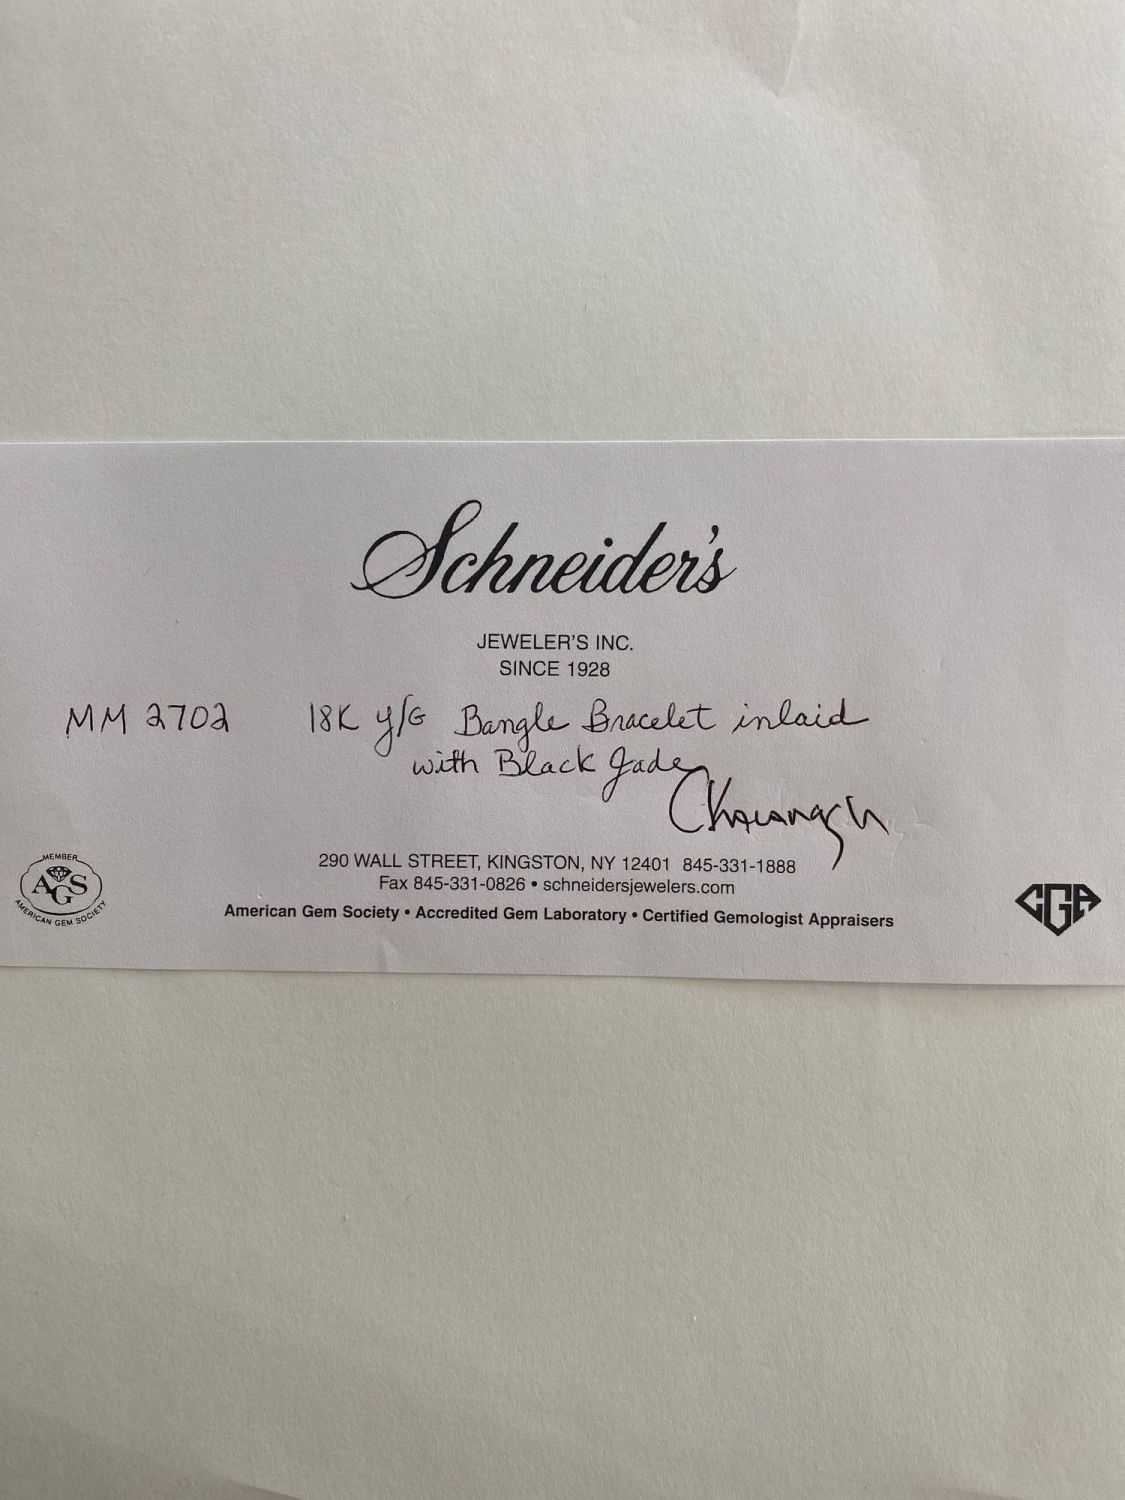 Schneider's
JEWELER'S INC.
SINCE 1928
MM 2702 18K y/G Bangle Bracelet inlaid
with Black Jade
290 WALL STREET, KINGSTON, NY 12401 845-331-1888
Fax 845-331-0826 • schneidersjewelers.com
American Gem Society • Accredited Gem Laboratory • Certified Gemologist Appraisers
MEMBER
AGS
AMERICAN GEM SOCIETY
CGA